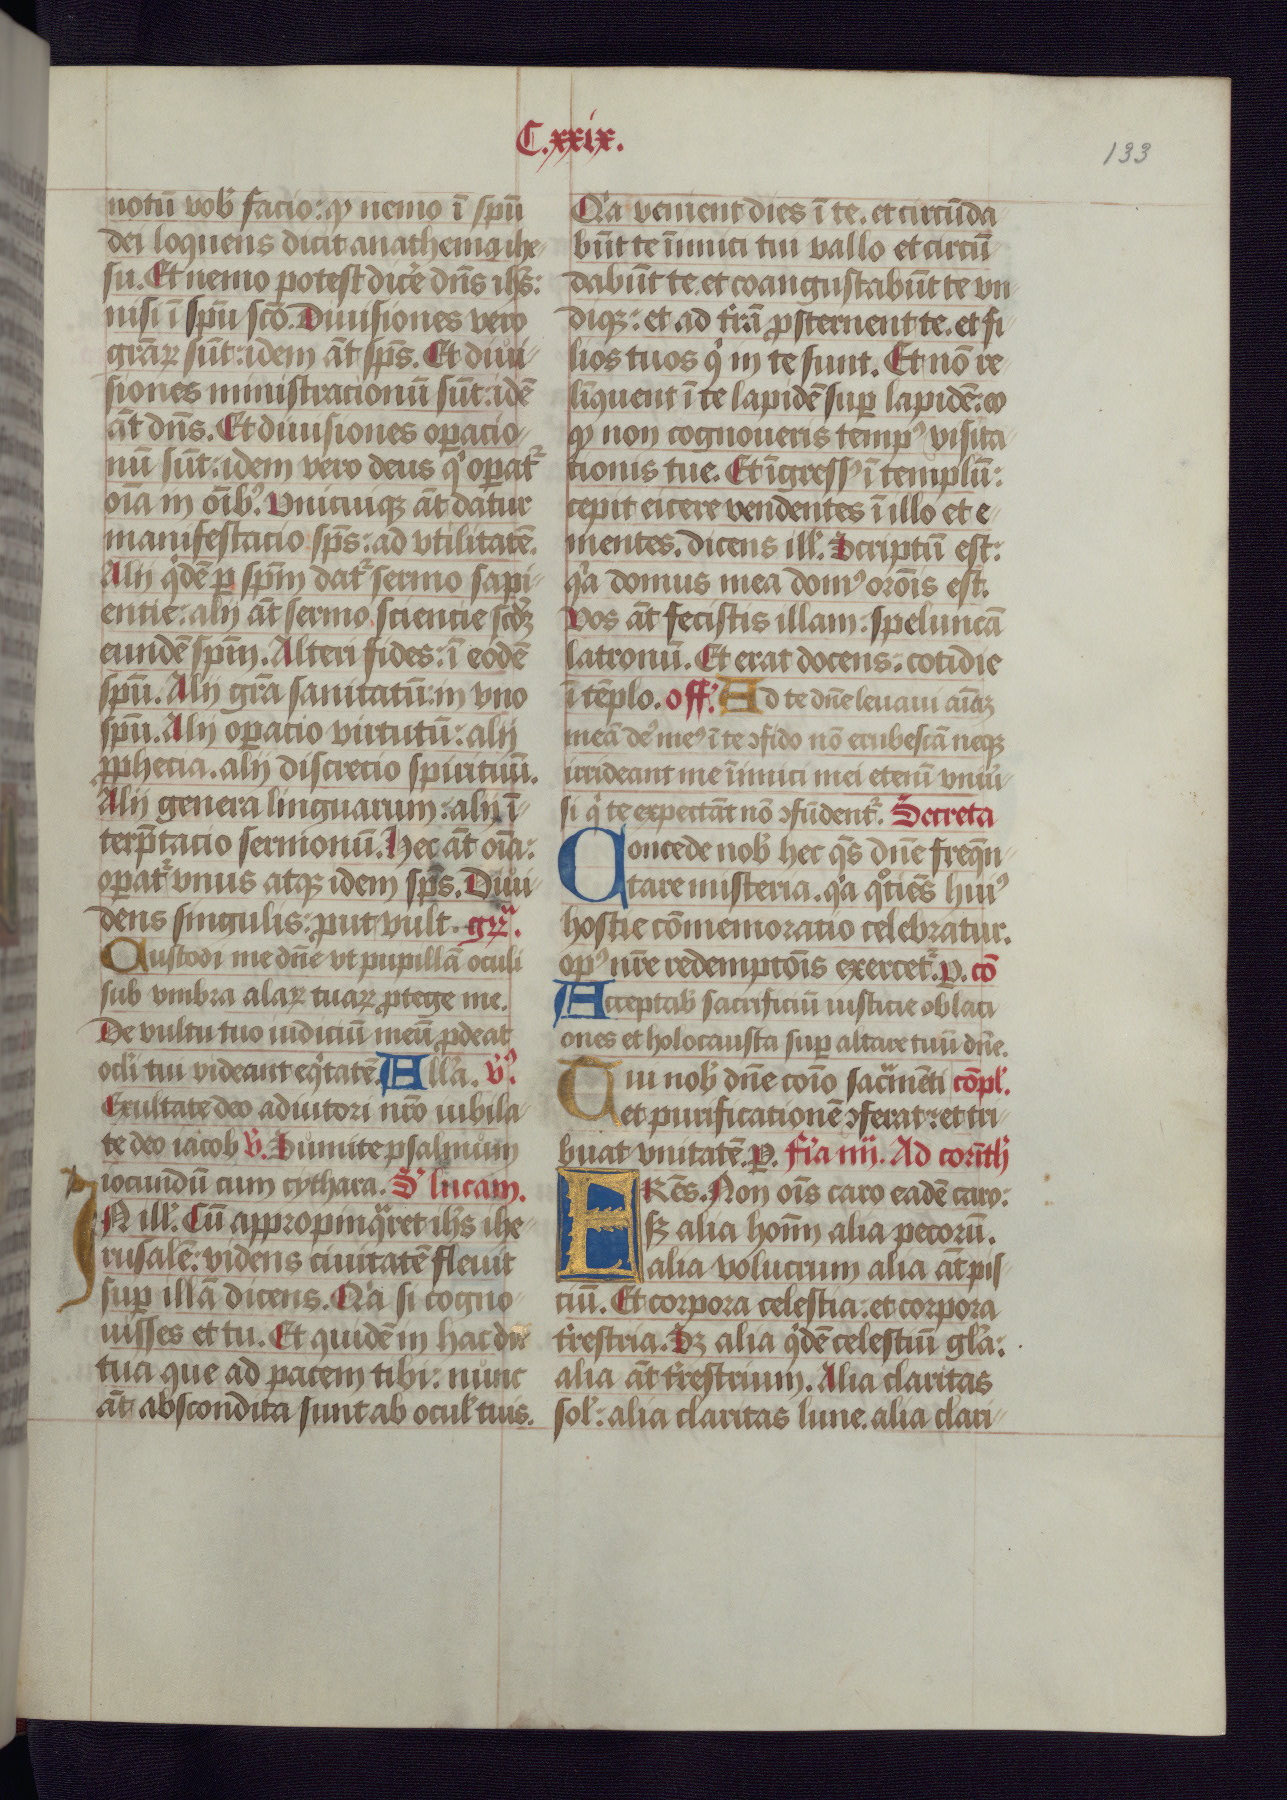 C.xxix.
133
notū vob̛ facio: qꝫ nemo ī spū
dei loquens dicit anathema ihe-
su. Et nemo potest dicē dn̄s ih̄s:
nisi ī spū scō. Diuisiones vero
grāꝝ sūt: idem āt sp̄s. Et diui-
siones ministracionū sūt: idē
āt dn̄s. Et diuisiones oꝑacio-
nū sūt: idem vero deus qͥ oꝑat᷑
oīa in oīb᷒. Vnicuiqꝫ āt datur
manifestacio sp̄s: ad vtilitatē.
Alij qͥdē ꝑ sp̄m dat᷑ sermo sapi-
entie: alij āt sermo sciencie scd̄ꝫ
eundē sp̄m. Alteri fides: ī eodē
spū. Alij grā sanitatū: in vno
spū. Alij oꝑacio virtutū: alij
ꝓphecia. alij discrecio spirituū.
Alij genera linguarum: alij ī-
terp̄tacio sermonū. Hec āt oīa:
oꝑat᷑ vnus atqꝫ idem sp̄s. Diui-
dens singulis: ꝓut vult. gr̄.
Custodi me dn̄e vt pupillā oculi
sub vmbra alaꝝ tuaꝝ ꝓtege me.
De vultu tuo iudiciū meū ꝓdeat
oc̄li tui videant eqͥtatē. All̄a. v̄.
Exultate deo adiutori nr̄o iubila-
te deo iacob v̄. Sumite psalmum
iocundū cum cythara. S̄ lucam.
IN ill̄. Cū appropinqͣret ih̄s ihe-
rusalē: videns ciuitatē fleuit
suꝑ illā dicens. Qͥa si cogno-
uisses et tu. Et quidē in hac die
tua que ad pacem tibi: nunc
āt abscondita sunt ab ocul̛ tuis.
Qͥa venient dies ī te. et circūda-
būt te īimici tui vallo et circū-
dabūt te. et coangustabūt te vn-
diqꝫ: et ad tr̄ā ꝓsternent te. et fi-
lios tuos qͥ in te sunt. Et nō re-
līquent ī te lapidē suꝑ lapidē: eo
qꝫ non cognoueris temp᷒ visita-
tionis tue. Et īgress᷒ ī templū:
cepit eicere vendentes ī illo et e-
mentes. dicens ill̄. Scriptū est:
qͥa domus mea dom᷒ orōis est.
Vos āt fecistis illam: speluncā
latronū. Et erat docens: cotidie
ī tēplo. off̄. Ad te dn̄e leuaui aīāꝫ
meā de᷒ me᷒ ī te ꝯfido nō erubescā neqꝫ
irrideant me īimici mei etenī vniū-
si qͥ te expectāt nō ꝯfūdent᷑. Secreta
Concede nob̛ hec qͣs dn̄e freqn̄-
tare misteria. qͥa qͦtiēs hui᷒
hostie cōmemoratio celebratur.
op᷒ nr̄e redemptōis exercet᷑. ꝑ. cō
Acceptab̛ sacrificiū iusticie oblaci-
ones et holocausta suꝑ altare tuū dn̄e.
Tui nob̛ dn̄e coīo sacͣmēti cōpl̛.
et purificationē ꝯferat: et tri-
buat vnitatē. ꝑ. fīa iiij. Ad corīth̛
FRēs. Non oīs caro eadē caro:
sꝫ alia hoīm alia pecorū.
alia volucrum alia āt pis-
ciū. Et corpora celestia: et corpora
tr̄estria. Sꝫ alia qͥdē celestiū gl̄a:
alia āt tr̄estrium. Alia claritas
sol̛: alia claritas lune. alia clari-